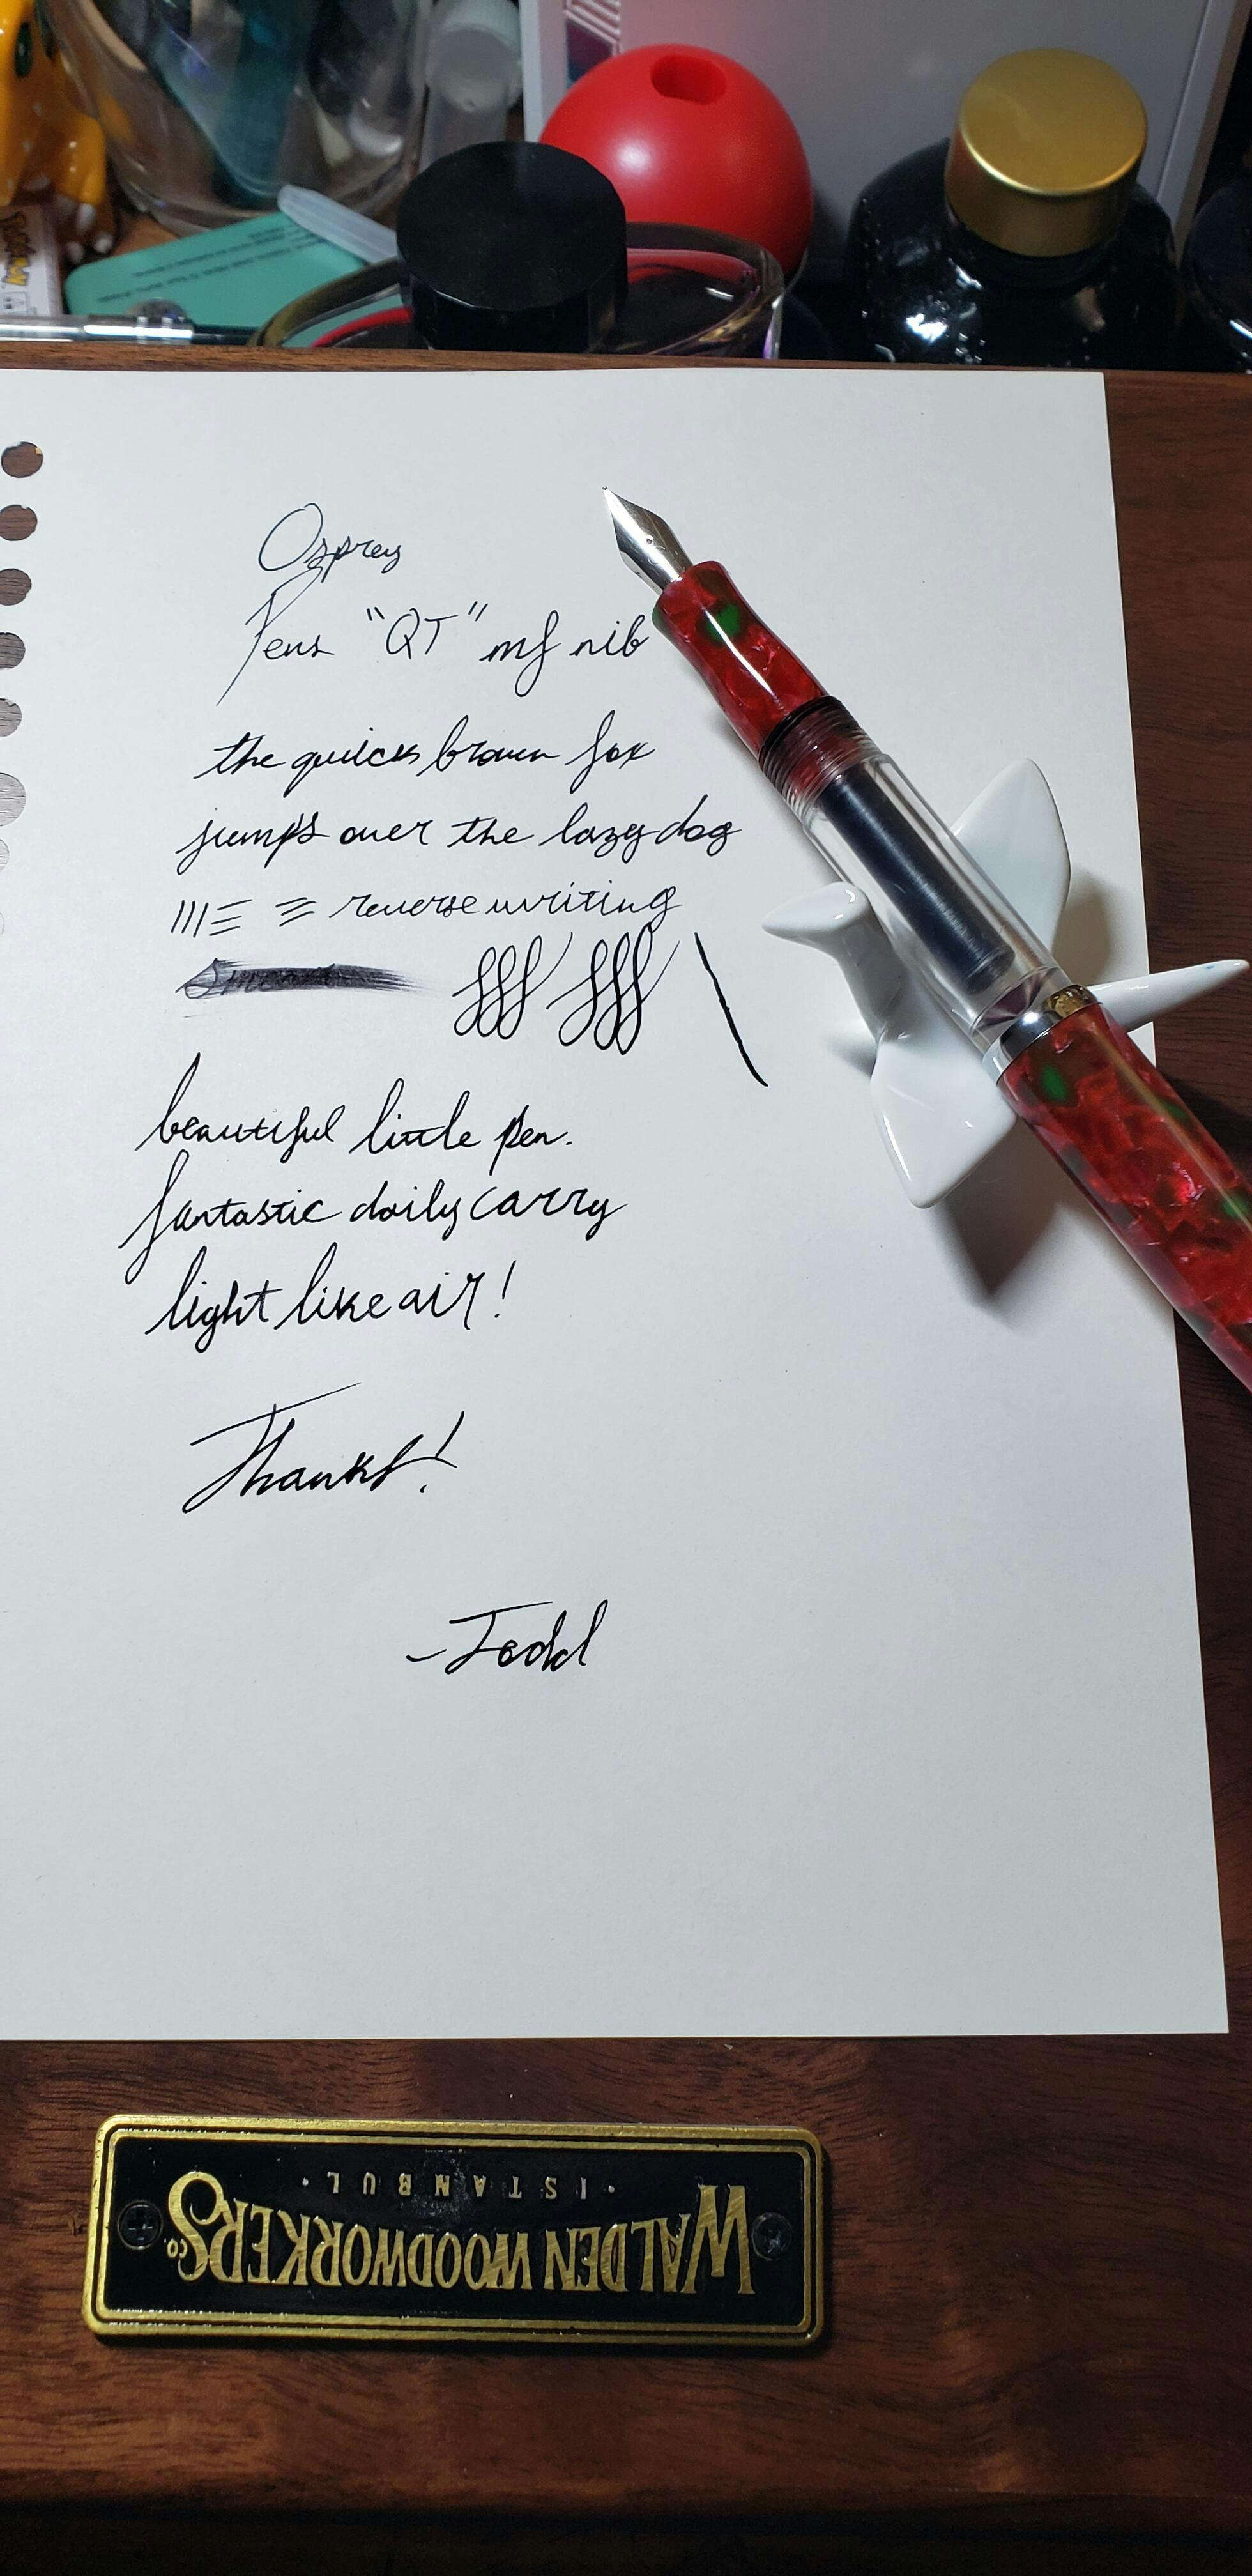 Osprey
Pens "QT" mf nib
the quick brown fox
jumps over the lazy dog
reverse writing
beautiful little pen.
fantastic daily carry
light like air!
Thanks!
-Todd
WALDEN WOODWORKERS CO
· ISTANBUL ·